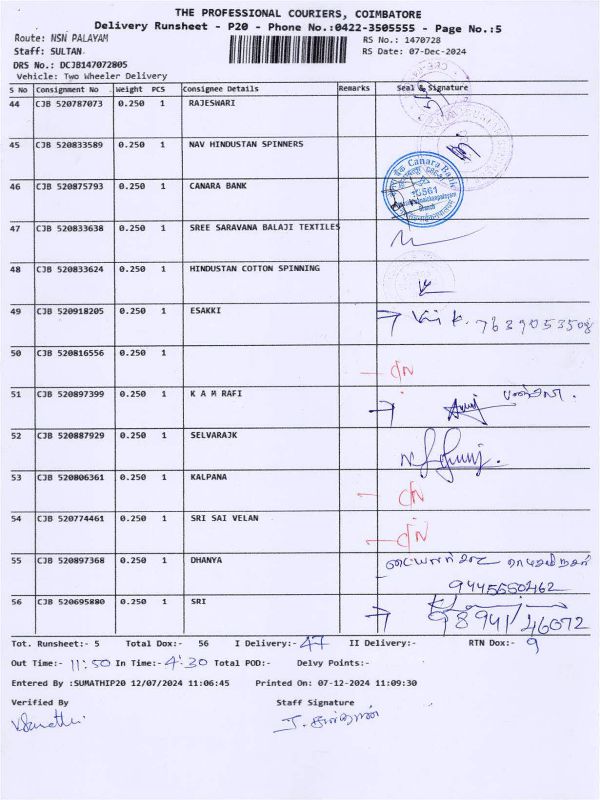 THE PROFESSIONAL COURIERS, COIMBATORE
Delivery Runsheet - P20 - Phone No.:0422-3505555 - Page No.:5
Route: NSN PALAYAM RS No.: 1470728
Staff: SULTAN RS Date: 07-Dec-2024
DRS No.: DCJB147072805
Vehicle: Two Wheeler Delivery
S No Consignment No Weight PCS Consignee Details Remarks Seal & Signature
44 CJB 520787073 0.250 1 RAJESWARI
45 CJB 520833589 0.250 1 NAV HINDUSTAN SPINNERS
46 CJB 520875793 0.250 1 CANARA BANK Canara Bank
47 CJB 520833638 0.250 1 SREE SARAVANA BALAJI TEXTILES
48 CJB 520833624 0.250 1 HINDUSTAN COTTON SPINNING
49 CJB 520918205 0.250 1 ESAKKI 7639053508
50 CJB 520816556 0.250 1
51 CJB 520897399 0.250 1 K A M RAFI
52 CJB 520887929 0.250 1 SELVARAJK
53 CJB 520806361 0.250 1 KALPANA
54 CJB 520774461 0.250 1 SRI SAI VELAN
55 CJB 520897368 0.250 1 DHANYA
9445550462
56 CJB 520695880 0.250 1 SRI 98941 46072
Tot. Runsheet:- 5 Total Dox:- 56 I Delivery:- 47 II Delivery:- RTN Dox:- 9
Out Time:- 11:50 In Time:- 4:30 Total POD:- Delvy Points:-
Entered By :SUMATHIP20 12/07/2024 11:06:45 Printed On: 07-12-2024 11:09:30
Verified By Staff Signature